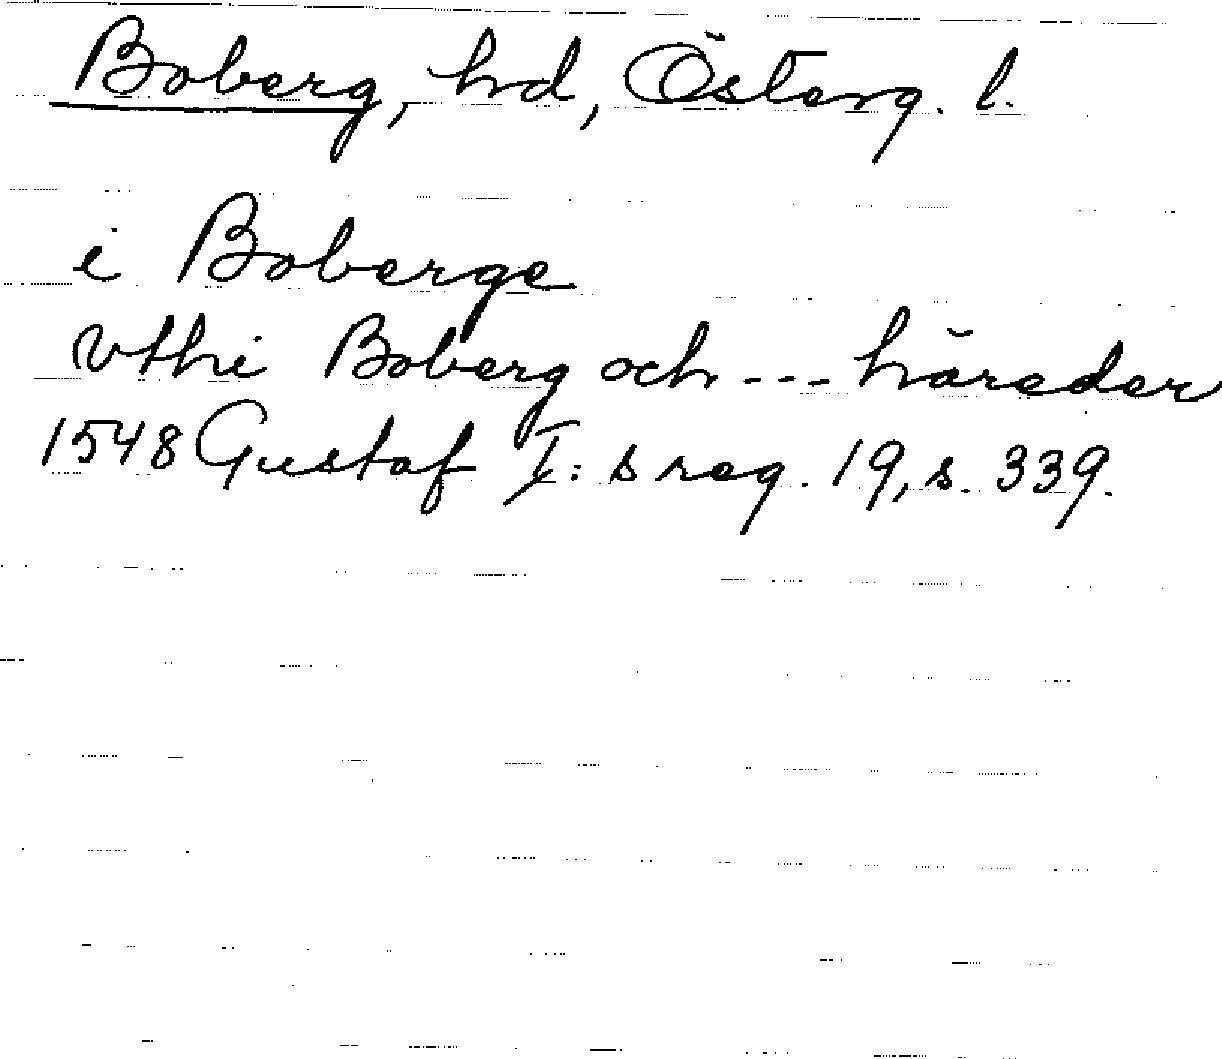 Boberg, hd, Österg. l.
i Boberge
vthi Boberg och --- häreder
1548 Gustaf I:s reg. 19, s. 339.